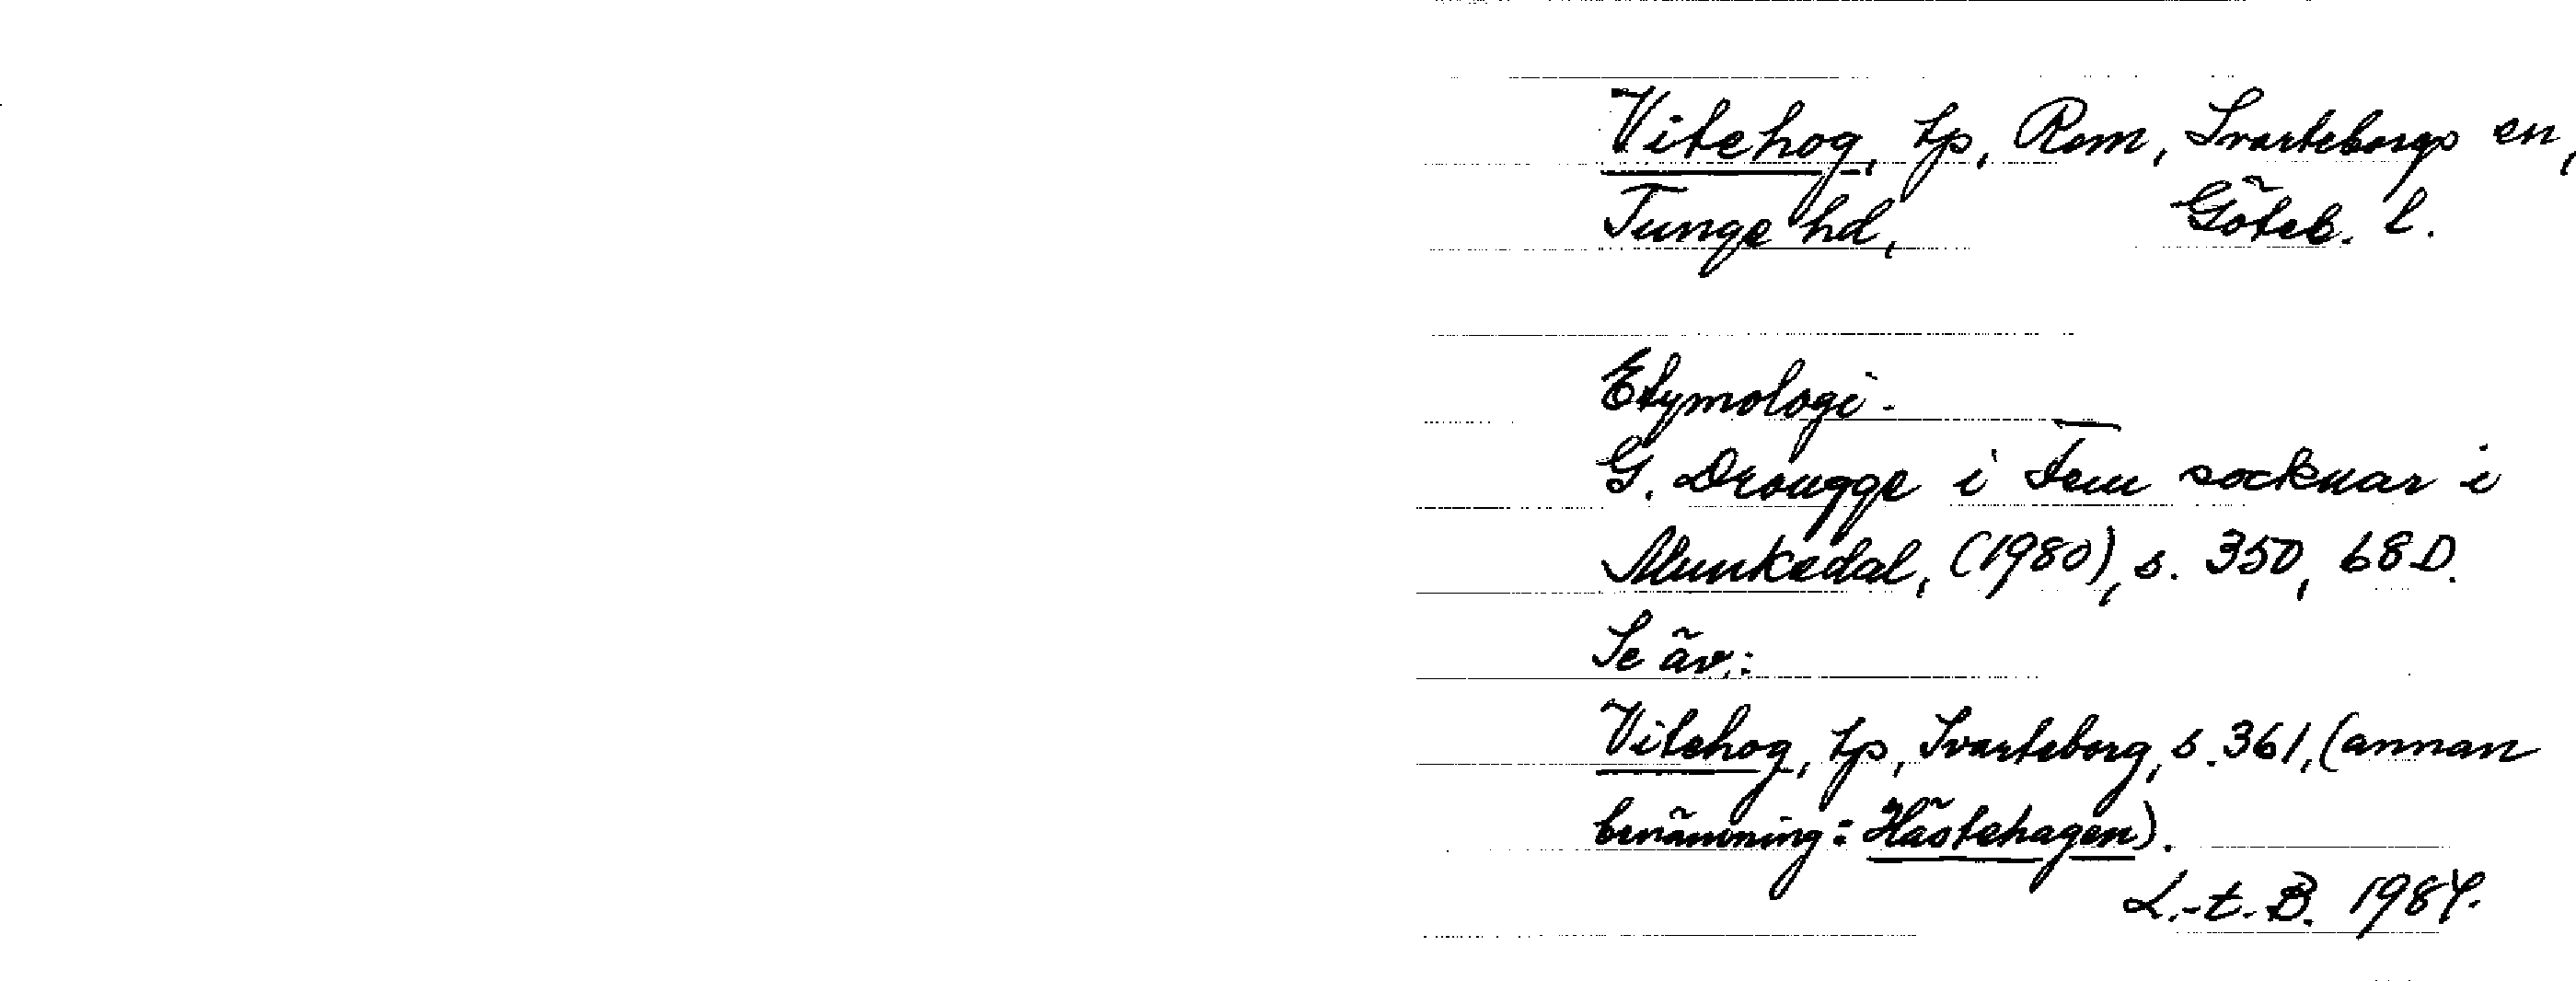 Vitehog, tp, Rom, Svarteborgs sn,
Tunge hd, Göteb. l.
Etymologi.
G. Drougge i Fem socknar i
Munkedal, (1980), s. 350, 68 D.
Se äv.:
Vitehog, tp, Svarteborg, s. 361, (annan
benämning: Hästehagen).
L.-t. B. 1984.